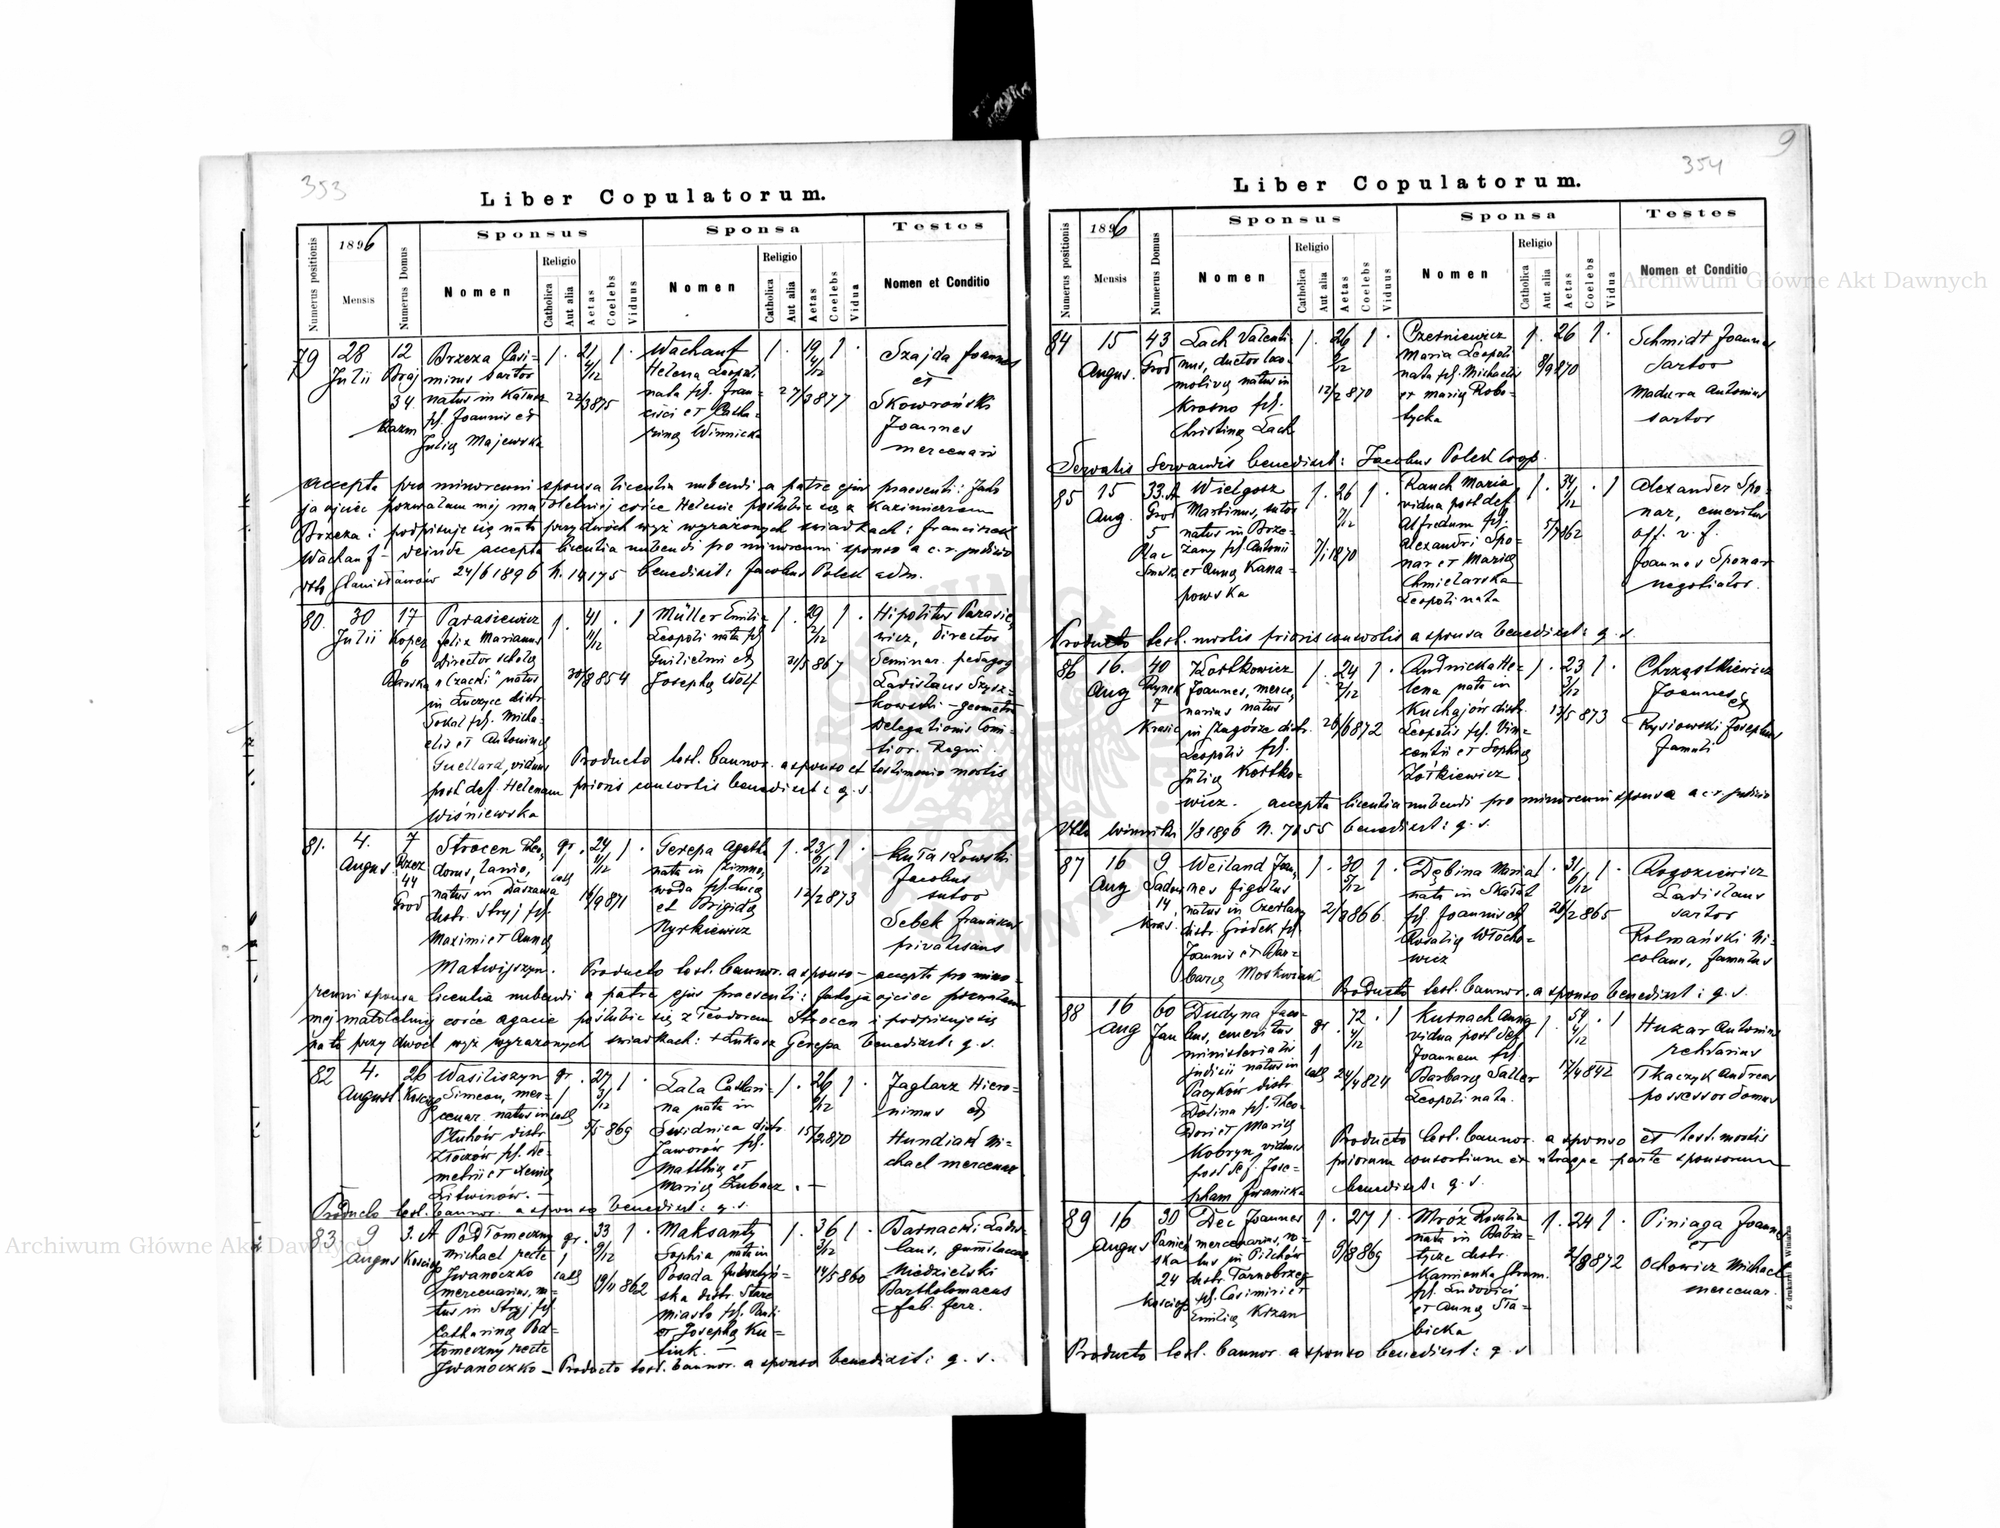 353
Liber Copulatorum.
Numerus positionis
1896
Mensis
Numerus Domus
Sponsus
Nomen
Religio
Catholica
Aut alia
Aetas
Coelebs
Viduus
Sponsa
Nomen
Religio
Catholica
Aut alia
Aetas
Coelebs
Vidua
Testes
Nomen et Conditio
79
28
Julii
12
34
Brzeza Casi-
mirus sartor
natus in
fil. Joannis et
Julię Majewska
1 . 21 4/12 1 .
22/3 875
Wachauf
Helena Leopoli
nata fil. Fran-
cisci et Catha-
rinę Winnicka
1 . 19 4/12 1 .
27/3 877
Szajda Joannes
et
Skowroński
Joannes
mercenarii
accepta pro minorenni sponsa licentia nubendi a patre ejus praesenti: Jako
ja ojciec pozwalam mej małoletniej córce Helenie poślubić się z Kazimierzem
Brzeza i podpisuję się na to przy dwóch wyż wyrażonych świadkach: Franciszek
Wachauf – deinde accepta licentia nubendi pro minorenni sponso a c. r. judicio
Stanisławów 24/6 1896 N. 14175 benedixit: Jacobus Polek adm.
80.
30
Julii
17
Koper
6
Parasiewicz
Felix Marianus
Director scholę
"Czacki" natus
in Łuczyce distr.
Sokal fil. Micha-
elis et Antoninę
Guellard, viduus
post def. Helenam
Wiśniewska
1 . 41 11/12 . 1
30/8 854
Müller Emilia
Leopoli nata fil.
Guilielmi et
Josephę Wolf
1 . 29 2/12 1 .
31/5 867
Hipolitus Parasie-
wicz, Director
Seminar. pedagog.
Ladislaus Szysz-
kowski – geometra
Delegationis Comi-
tior. Regni
Producto test. bannor. a sponso et testimonio mortis
prioris consortis benedixit: q. s.
81.
4.
Augus
7
44
Grod
Strocen Theo-
dorus, lanio,
natus in Daszawa
distr. Stryj fil.
Maximi et Annę
Matwijszyn.
gr. cath 24 11/12 1
16/9 871
Gerepa Agatha
nata in Zimno-
woda fil. Lucę
et Brigidę
Nyrkiewicz
1 . 23 6/12 1 .
12/2 873
Jacobus
sutor
Sebek Franciscus
privatisans
Producto test. bannor. a sponso – accepta pro mino-
renni sponsa licentia nubendi a patre ejus praesenti: Jako ja ojciec pozwalam
mej małoletniej córce Agacie poślubić się z Teodorem Strocen i podpisuję się
na to przy dwóch wyż wyrażonych świadkach: +Łukasz Gerepa benedixit: q. s.
82
4.
August
26
Wasiliszyn
Simeon, mer-
cenar. natus in
Płuhów distr.
Złoczów fil. De-
metrii et Xenię
Litwinów. –
gr. cath 27 3/12 1 .
5/5 869
Lala Cathari-
na nata in
Świdnica distr.
Jaworów fil.
Matthię et
Marię Zubacz . –
1 . 26 6/12 1 .
15/2 870
Jaglarz Hiero-
nimus et
Hundiak Mi-
chael mercenar.
Producto test. bannor. a sponso benedixit: q. s.
83.
9
Augus
3. A
Podłomeczny
Michael recte
Jwanoczko
mercenarius, na-
tus in Stryj fil.
Catharinę Pod-
łomeczny recte
Jwanoczko –
gr. cath 33 9/12 1 .
19/11 862
Maksanty
Sophia nata in
Posada
distr. Stare
miasto fil. Pauli
et Josephę Ku-
1 . 36 3/12 1 .
14/5 860
Barnacki Ladis-
laus,
Niedzielski
Bartholomaeus
fab. ferr.
Producto test. bannor. a sponso benedixit: q. s.
9
354
Liber Copulatorum.
Numerus positionis
1896
Mensis
Numerus Domus
Sponsus
Nomen
Religio
Catholica
Aut alia
Aetas
Coelebs
Viduus
Sponsa
Nomen
Religio
Catholica
Aut alia
Aetas
Coelebs
Vidua
Testes
Nomen et Conditio
84
15
Augus.
43
Grod
Lach Valenti-
nus, ductor loco-
motivę natus in
Krosno fil.
Christinę Lach
1 . 26 6/12 1 .
12/2 870
Maria Leopoli
nata fil. Michaelis
et Marię Robo-
tycka
1 . 26 1 .
8/9 870
Schmidt Joannes
sartor
Madura Antonius
sartor
Servatis Servandis benedixit: Jacobus Polek Coop.
85
15
Aug.
33. A
Grod
5
Wielgosz
Martinus, sutor
natus in Brze-
zany fil. Antonii
et Annę Kana-
powska
1 . 26 7/12 1 .
7/1 1870
Rauch Maria
vidua post def.
Alfredum fil.
Alexandri Spo-
nar et Marię
Chmielarska
Leopoli nata
1 . 34 1/12 . 1
5/7 862
Alexander Spo-
nar, emeritus
off. v. f.
Joannes Sponar
negotiator.
Producto test. mortis prioris consortis a sponsa benedixit: q. s.
86
16.
Aug
40
Rynek
7
Kostkowicz
Joannes, merce-
narius natus
in Zagórze distr.
Leopolis fil.
Julię Kostko-
wicz.
1 . 24 2/12 1 .
26/6 872
Rudnicka He-
lena nata in
Kuchajów distr.
Leopolis fil. Vin-
centii et Sophię
Zółkiewicz
1 . 23 3/12 1 .
12/5 873
Chrząstkiewicz
Joannes et
Rysiowski Josephus
famuli
accepta licentia nubendi pro minorenni sponso a c. r. judicio
Winniki 1/8 1896 N. 7055 benedixit: q. s.
87
16
Aug
9
14
Weiland Joan-
nes figulus
natus in Czerlany
distr. Gródek fil.
Joannis et Bar-
barę
1 . 30 5/12 1 .
2/3 866
Dębina Maria
nata in Skałat
fil. Joannis et
Rosalię Włocho-
wicz
1 . 31 6/12 1 .
26/2 865
Ladislaus
sartor
Rolmański Ni-
colaus, famulus
Producto test. bannor. a sponso benedixit: q. s.
88
16
Aug
60
Jan
Dudyna Jaco-
bus, emeritus
ministerialis
judicii natus in
Pacyków distr.
Dolina fil. Theo-
dori et Marię
Kobryn, viduus
post def. Jose-
pham Jwanicka
gr. cath 72 4/12 . 1
24/4 824
Kusnach Anna
vidua post def.
Joannem fil.
Barbarę Saller
Leopoli nata.
1 . 54 4/12 . 1
17/4 842
Huzar Antonius
Tkaczyk Andreas
possessor domus
Producto test. bannor. a sponso et test. mortis
priorum consortium ex utraque parte sponsorum
benedixit: q. s.
89
16
Augus
30
24
Dec Joannes
mercenarius, na-
tus in Pilchów
distr. Tarnobrzeg
fil. Casimiri et
Emilię Krzan
1 . 27 1 .
9/8 869
Mróz Rosalia
nata in
distr.
Kamionka Strum.
fil. Ludovici
et Annę Sta-
bicka
1 . 24 1 .
2/8 872
Piniaga Joannes
et
Ochowicz Michael
mercenar.
Producto test. bannor. a sponso benedixit: q. s.
Z drukarni W
Archiwum Główne Akt Dawnych
Archiwum Główne Akt Dawnych